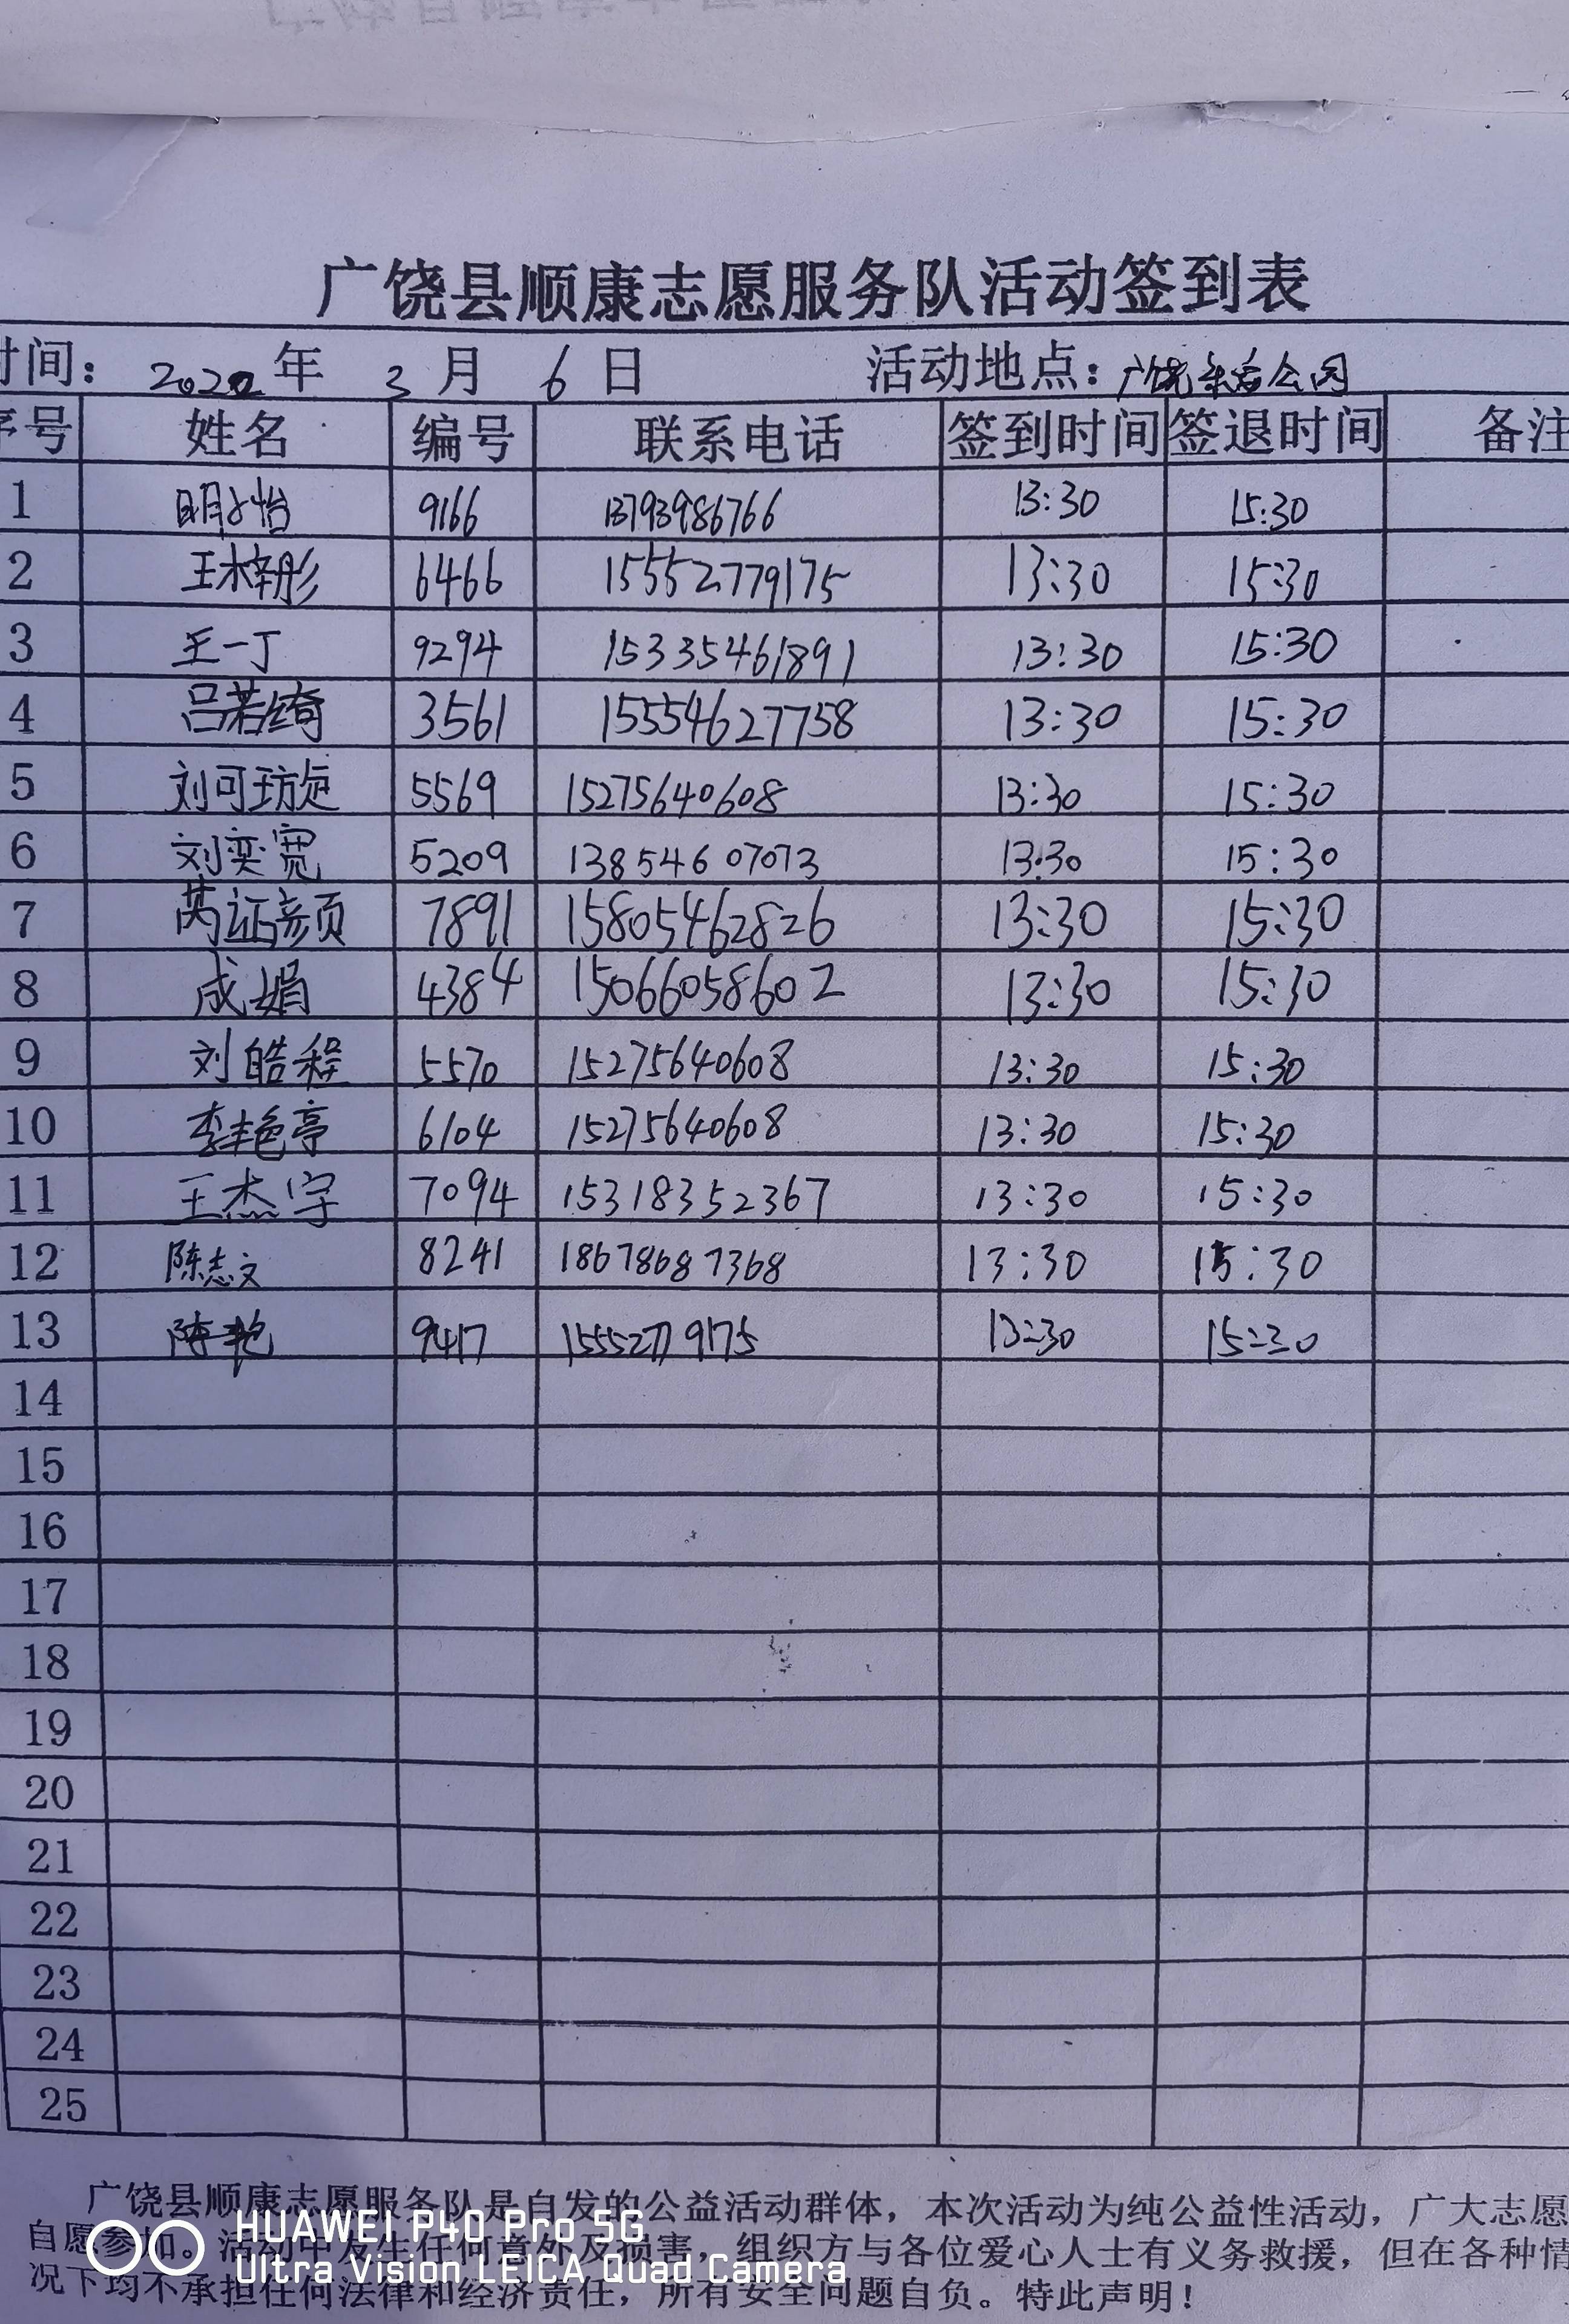 广饶县顺康志愿服务队活动签到表
时间: 2022 年 3 月 6 日 活动地点: 广饶乐安公园
序号 姓名 编号 联系电话 签到时间 签退时间 备注
1 明子怡 9166 13793986766 13:30 15:30
2 王梓彤 6466 15552779175 13:30 15:30
3 王一丁 9294 15335461891 13:30 15:30
4 吕若绮 3561 15554627758 13:30 15:30
5 刘可 5569 15275640608 13:30 15:30
6 刘奕宽 5209 13854607073 13:30 15:30
7 7891 15805462826 13:30 15:30
8 成娟 4384 15066058602 13:30 15:30
9 刘皓程 5570 15275640608 13:30 15:30
10 李艳亭 6104 15275640608 13:30 15:30
11 王杰宇 7094 15318352367 13:30 15:30
12 陈志文 8241 18678687368 13:30 15:30
13 陈艳 9417 15552779175 13:30 15:30
14
15
16
17
18
19
20
21
22
23
24
25
广饶县顺康志愿服务队是自发的公益活动群体，本次活动为纯公益性活动，广大志愿
自愿参加。活动中发生任何意外及损害，组织方与各位爱心人士有义务救援，但在各种情
况下均不承担任何法律和经济责任，所有安全问题自负。特此声明！
HUAWEI P40 Pro 5G
Ultra Vision LEICA Quad Camera